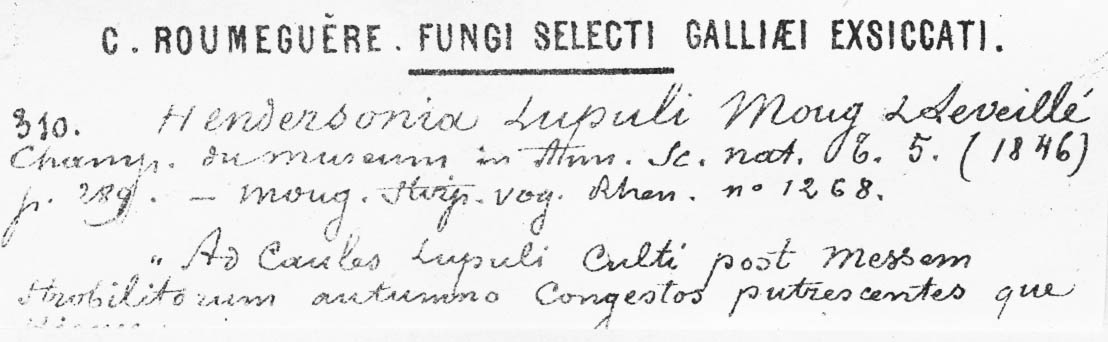 C. ROUMEGUÈRE. FUNGI SELECTI GALLIÆI EXSICCATI.
310. Hendersonia Lupuli Moug & Leveillé
Champ. du museum in Ann. Sc. nat. t. 5. (1846)
p. 289. — Moug. Stirp. vog. Rhen. no 1268.
" Ad Caules Lupuli Culti post Messem
Strobilitorum autumno Congestos putrescentes que